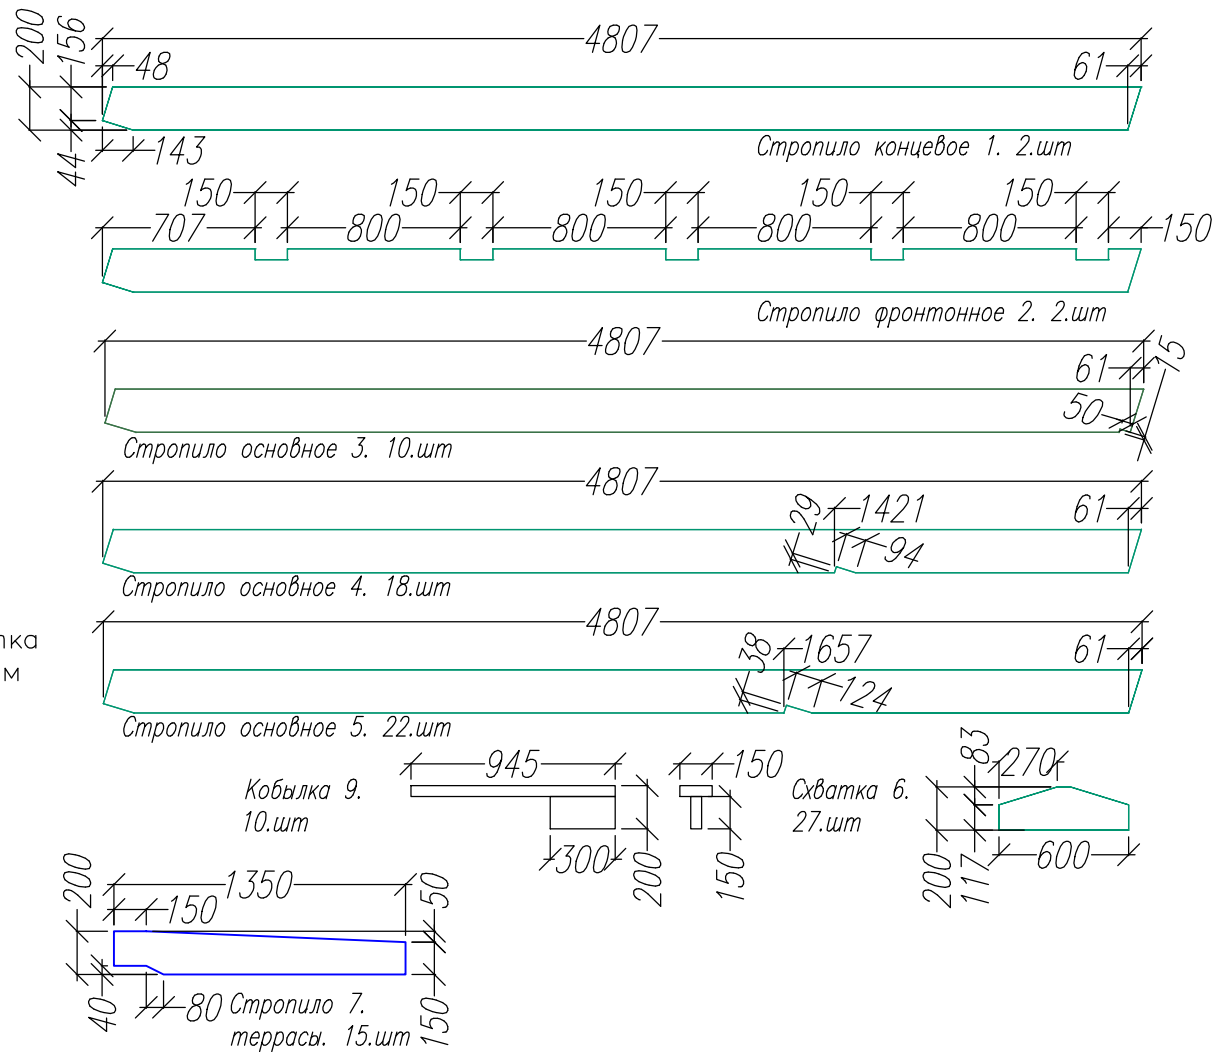 4807
200
156
48
61
44
143
Стропило концевое 1. 2.шт
150 150 150 150 150
707 800 800 800 800 150
Стропило фронтонное 2. 2.шт
4807
61
15
50
Стропило основное 3. 10.шт
4807
29
1421
94
61
Стропило основное 4. 18.шт
4807
38
1657
124
61
Стропило основное 5. 22.шт
м
945
150
Кобылка 9.
10.шт
300
200
150
Схватка 6.
27.шт
83
270
200
117
600
200
1350
150
50
40
80
150
Стропило 7.
террасы. 15.шт